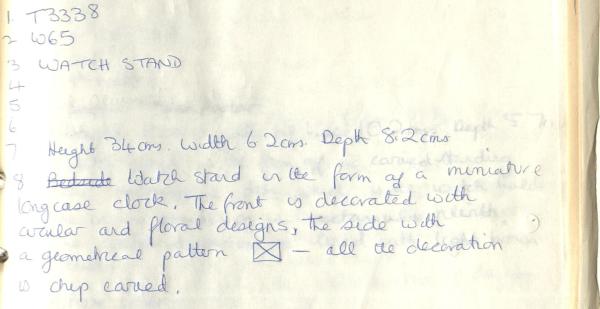 1 T3338
2 W65
3 WATCH STAND
4
5
6
7 Height 34cms. Width 6.2cms. Depth 8.2cms
8 Bedside Watch stand in the form of a miniature
longcase clock. The front is decorated with
circular and floral designs, the side with
a geometrical pattern — all the decoration
is chip carved.